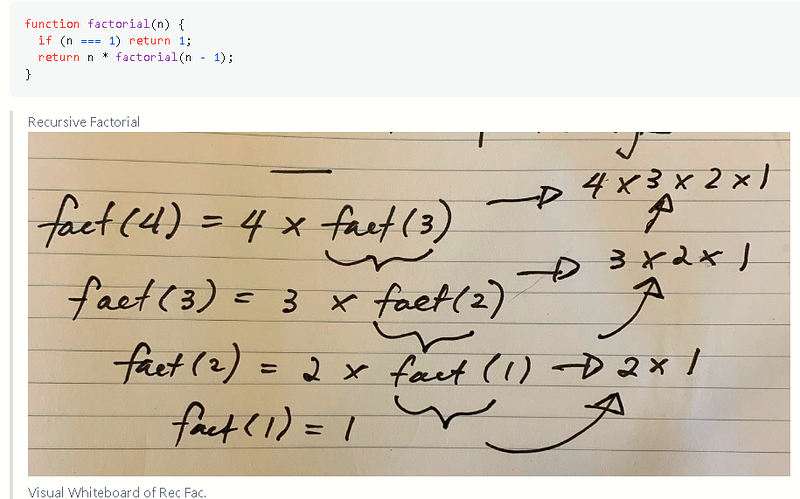 function factorial(n) {
if (n === 1) return 1;
return n * factorial(n - 1);
}
Recursive Factorial
fact(4) = 4 x fact(3) → 4 x 3 x 2 x 1
fact(3) = 3 x fact(2) → 3 x 2 x 1
fact(2) = 2 x fact(1) → 2 x 1
fact(1) = 1
Visual Whiteboard of Rec Fac.